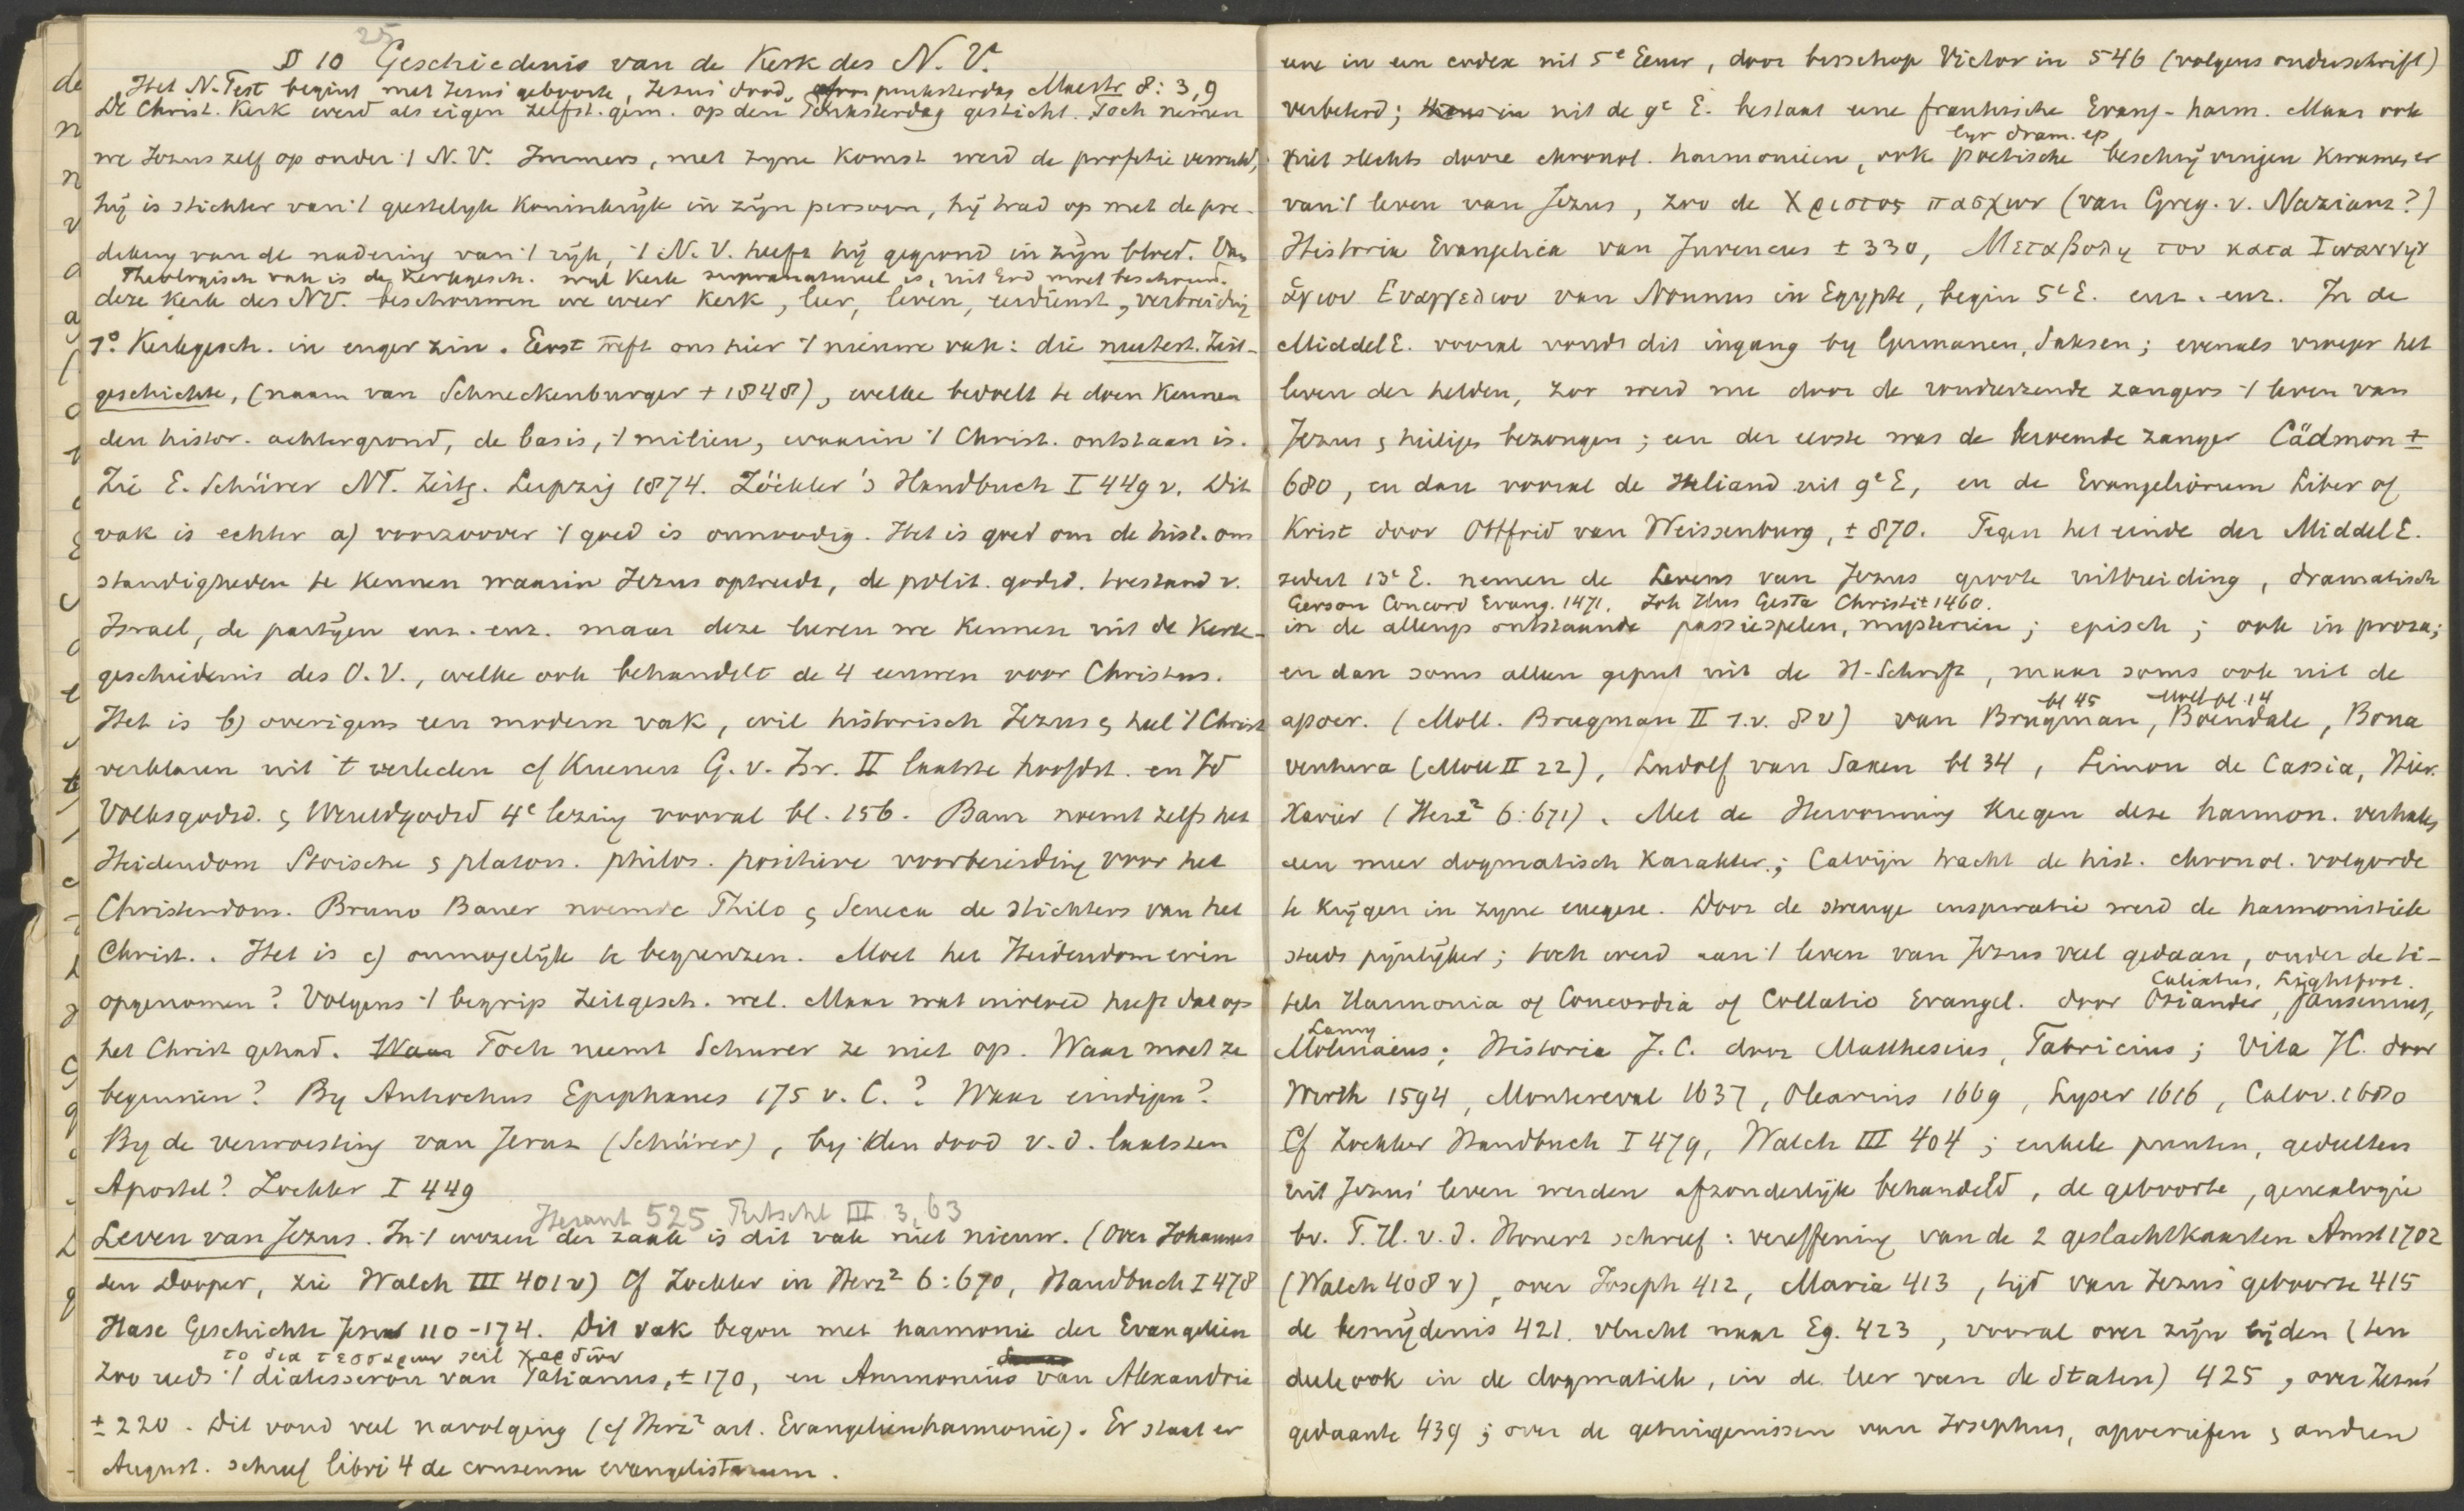 25
§ 10 Geschiedenis van de Kerk des N. V.
Het N. Test begint met Jezus' geboorte, Jezus' dood, pinksterdag Maestr 8: 3,9
De Christ. Kerk werd als eigen zelfst. gem. op den Pinksterdag gesticht. Toch nemen
we Jezus zelf op onder 't N. V. Immers, met zyne komst werd de profetie vervuld,
hij is stichter van 't geestelyk koninkryk in zijn persoon, hij trad op met de pre-
diking van de nadering van 't rijk, 't N. V. heeft hij gegrond in zijn bloed. Van
Theologisch vak is de Kerkgesch. wyl Kerk supranatureel is, uit God moet beschouwd.
deze Kerk des NV. beschouwen we weer kerk, leer, leven, eredienst, verbreiding
1°. Kerkgesch. in enger zin. Eerst treft ons hier 't nieuwe vak: die neutest. Zeit-
geschichte, (naam van Schneckenburger + 1848), welke bedoelt te doen kennen
den histor. achtergrond, de basis, 't milieu, waarin 't Christ. ontstaan is.
Zie E. Schürer NT. Zeitg. Leipzig 1874. Zöckler's Handbuch I 449 v. Dit
vak is echter a) voorzoover 't goed is onnoodig. Het is goed om de hist. om
standigheden te kennen waarin Jezus optreedt, de polit. godsd. toestand v.
Israel, de partijen enz. enz. maar deze leeren we kennen uit de Kerk-
geschiedenis des O. V., welke ook behandelt de 4 eeuwen voor Christus.
Het is b) overigens een modern vak, wil historisch Jezus & heel 't Christ
verklaren uit 't verleden cf Kuenen G. v. Isr. II laatste hoofdst. en Id
Volksgodsd. & Wereldgodsd 4e lezing vooral bl. 156. Baur noemt zelfs het
Heidendom Stoische & platon. philos. positieve voorbereiding voor het
Christendom. Bruno Bauer noemde Philo & Seneca de stichters van het
Christ.. Het is c) onmogelijk te begrenzen. Moet het Heidendom erin
opgenomen? Volgens 't begrip Zeitgesch. wel. Maar wat invloed heeft dat op
het Christ gehad. Toch neemt Schurer ze niet op. Waar moet ze
beginnen? By Antiochus Epiphanes 175 v. C.? Waar eindigen?
By de verwoesting van Jeruz (Schürer), by den dood v. d. laatsten
Apostel? Zockler I 449
525 Ritschl III 3, 63
Leven van Jezus. In 't wezen der zaak is dit vak niet nieuw. (Over Johannes
den Dooper, zie Walch III 401 v) Cf Zockler in Herz² 6:670, Handbuch I 478
Hase Geschichte Jesu 110-174. Dit vak begon met harmonie der Evangelien
το δια τεσσαρων
Zoo reeds 't diatesseron van Tatianus, ± 170, en Ammonius van Alexandrie
± 220. Dit vond veel navolging (cf Herz² art. Evangelienharmonie). Er staat er
August. schreef libri 4 de consensu evangelistarum.
eene in een codex uit 5e Eeuw, door bisschop Victor in 546 (volgens onderschrift)
verbeterd; uit de 9e E. bestaat eene frankische Evang-harm. Maar ook
lyr dram. ep
niet slechts dorre chronol. harmonieën, ook poetische beschrijvingen kwamen er
van 't leven van Jezus, zoo de Χριστος πασχων (van Greg. v. Nazianz?)
Historia Evangelica van Juvencus ± 330, Μεταβολη του κατα Ιωαννην
ἁγιου Ευαγγελιου van Nonnus in Egypte, begin 5e E. enz. enz. In de
Middel E. vooral vondt dit ingang by Germanen, Saksen; evenals vroeger het
leven der helden, zoo werd nu door de rondreizende zangers 't leven van
Jezus & heiligen bezongen; een der eerste was de beroemde zanger Cädmon ±
680, en dan vooral de Heliand uit 9e E, en de Evangeliorum Liber of
Krist door Ottfrid van Weissenburg, ± 870. Tegen het einde der Middel E.
sedert 13e E. nemen de Levens van Jezus groote uitbreiding, dramatisch
Gerson Concord Evang. 1471. Joh Hus Gesta Christi ± 1460.
in de allengs ontstaande passiespelen, mysterien; episch; ook in proza;
en dan soms alleen geput uit de H-Schrift, maar soms ook uit de
bl 45 Moll bl. 14
apocr. (Moll. Brugman II 1.v. 8 v) van Brugman, Boendale, Bona
ventura (Moll II 22), Ludolf van Saxen bl 34, Simon de Cassia, Hier.
Xavier (Herz² 6:671). Met de Hervorming kregen deze harmon. verhalen
een meer dogmatisch karakter; Calvijn tracht de hist. chronol. volgorde
te krijgen in zyne exegese. Door de strenge inspiratie werd de harmonistiek
steeds pijnlijker; toch werd aan 't leven van Jezus veel gedaan, onder de ti-
Calixtus, Lightfoot.
tels Harmonia of Concordia of Collatio Evangel. door Osiander, Jansenius,
Lamy
Molinaeus; Historia J. C. door Matthesius, Fabricius; Vita JC. door
Wirth 1594, Montereval 1637, Olearius 1669, Lyser 1616, Calov. 1680
Cf Zockler Handbuch I 479, Walch III 404; enkele punten, gedeelten
uit Jezus' leven werden afzonderlijk behandeld, de geboorte, genealogie
bv. T. H. v. d. Honert schreef: vereffening van de 2 geslachtkaarten Amst 1702
(Walch 408 v), over Joseph 412, Maria 413, tijd van Jezus' geboorte 415
de besnijdenis 421. vlucht naar Eg. 423, vooral over zijn lijden (ten
deele ook in de dogmatiek, in de leer van de Staten) 425, over Jezus'
gedaante 439; over de getuigenissen van Josephus, apocriefen & andren